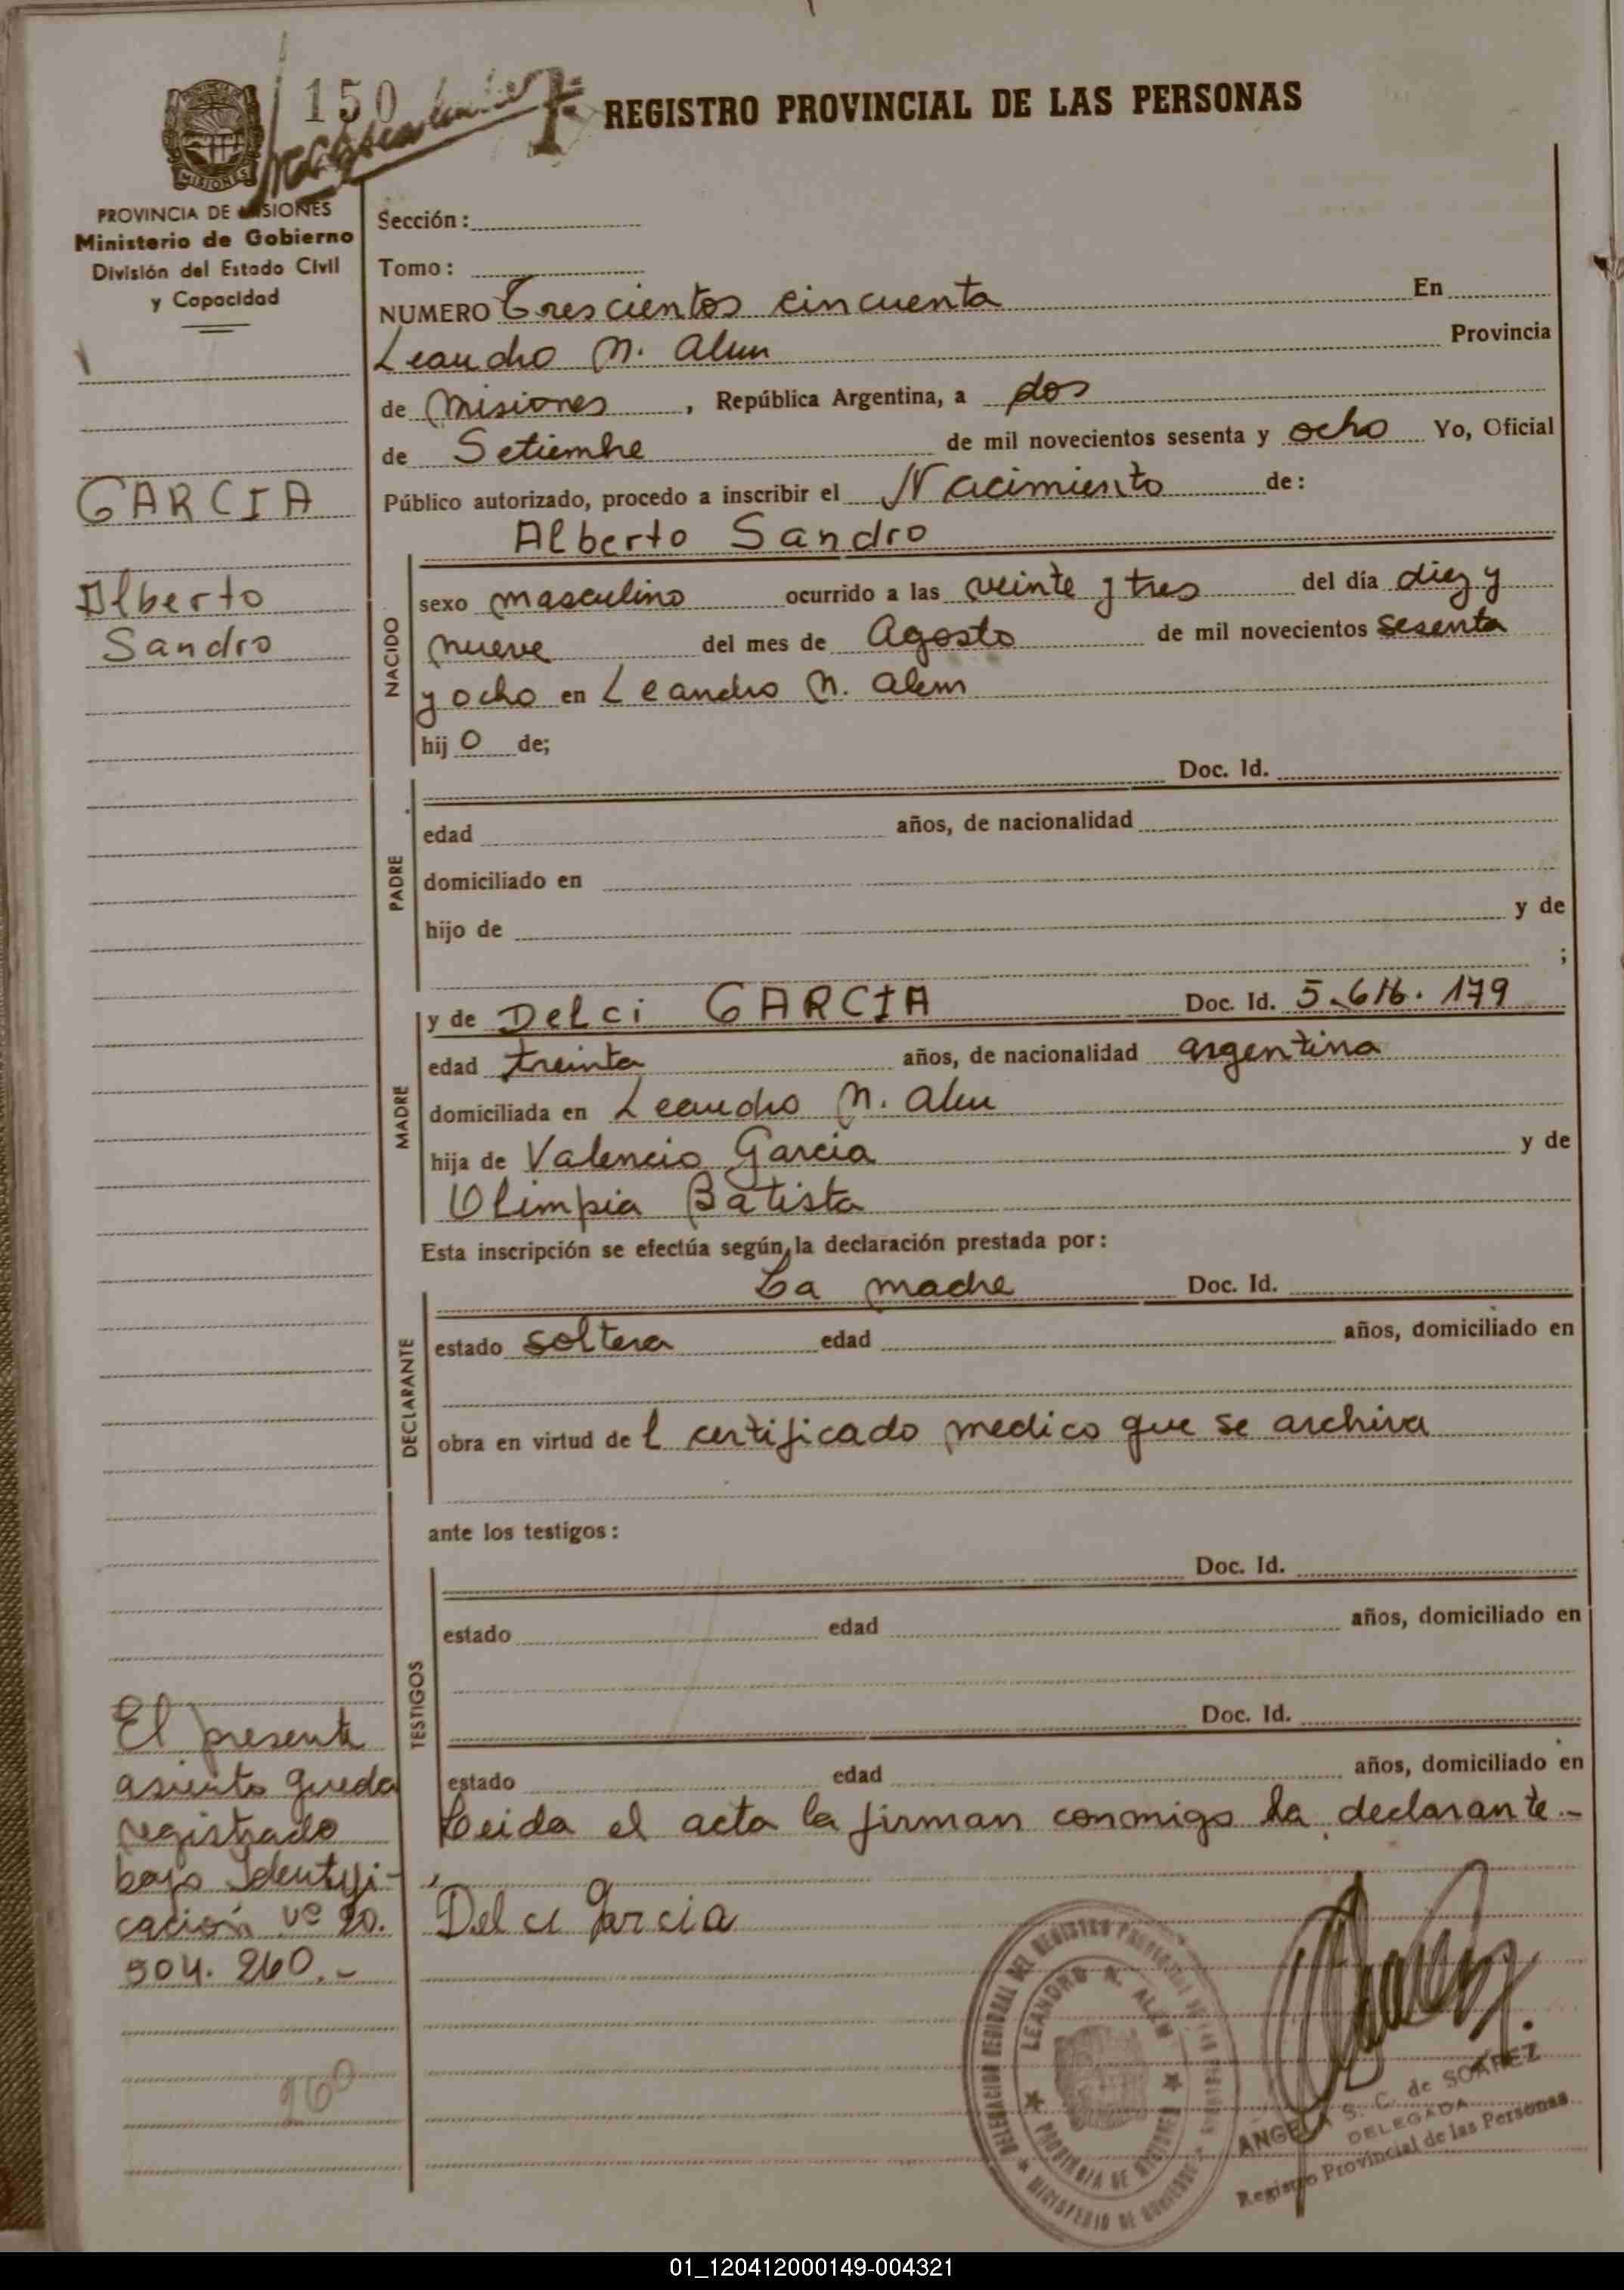 150
REGISTRO PROVINCIAL DE LAS PERSONAS
MISIONES
PROVINCIA DE MISIONES
Ministerio de Gobierno
División del Estado Civil
y Capacidad
Sección:
Tomo:
NUMERO Trescientos cincuenta En
Leandro N. Alem Provincia
de Misiones, República Argentina, a dos
de Setiembre de mil novecientos sesenta y ocho Yo, Oficial
Público autorizado, procedo a inscribir el Nacimiento de:
GARCIA
Alberto
Sandro
Alberto Sandro
NACIDO
sexo masculino ocurrido a las veinte y tres del día diez y
nueve del mes de Agosto de mil novecientos sesenta
y ocho en Leandro N. Alem
hijo de;
PADRE
Doc. Id.
edad años, de nacionalidad
domiciliado en
hijo de y de
;
MADRE
y de Delci GARCIA Doc. Id. 5.616.179
edad treinta años, de nacionalidad argentina
domiciliada en Leandro N. Alem
hija de Valencio Garcia y de
Olimpia Batista
Esta inscripción se efectúa según la declaración prestada por:
DECLARANTE
La madre Doc. Id.
estado soltera edad años, domiciliado en
obra en virtud del certificado medico que se archiva
ante los testigos:
TESTIGOS
Doc. Id.
estado edad años, domiciliado en
Doc. Id.
estado edad años, domiciliado en
Leida el acta la firman conmigo la declarante.-
Delci Garcia
El presente
asiento queda
registrado
bajo Identifi-
cación Nº 20.
504. 260.-
260
DELEGACION REGIONAL DEL REGISTRO PROVINCIAL DE LAS PERSONAS
LEANDRO N. ALEM
PROVINCIA DE MISIONES
MINISTERIO DE GOBIERNO
ANGELA S. C. de SOAREZ
DELEGADA
Registro Provincial de las Personas
01_120412000149-004321